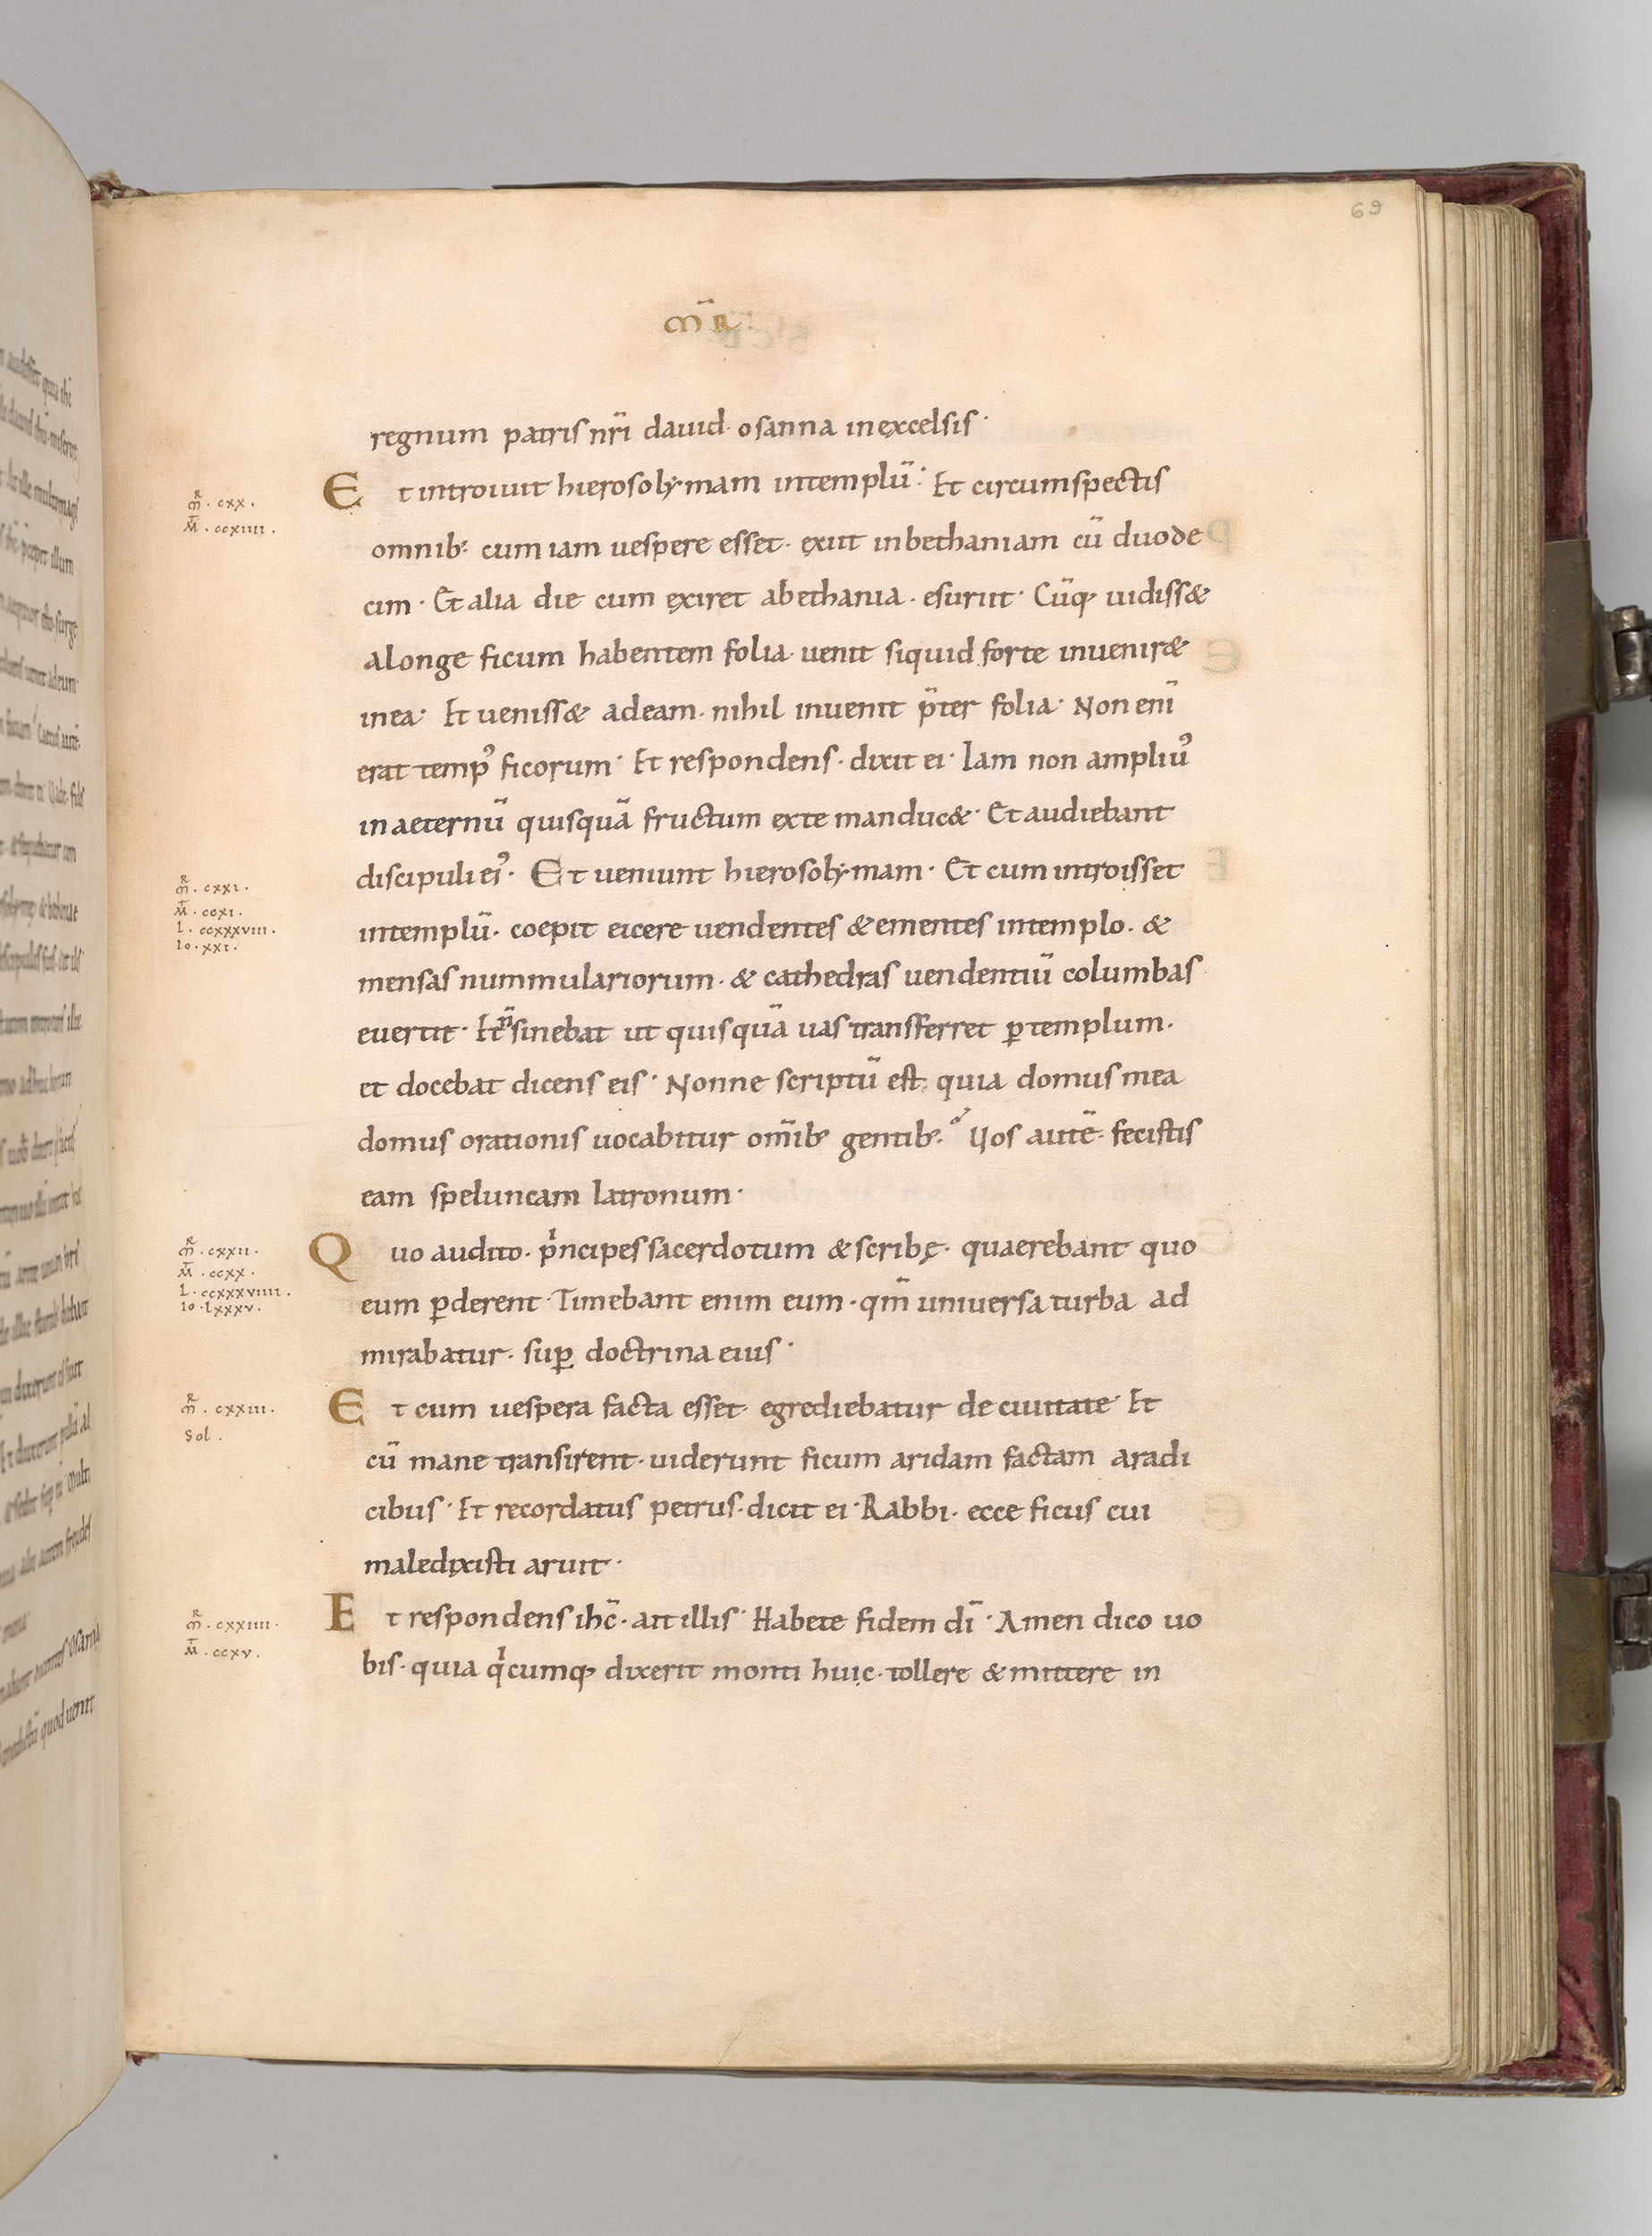 69
M̄R.
regnum patris nr̄i dauid· osanna inexcelsis·
Et introiuit hierosolẏmam intemplū· Et circumspectis
omnib; cum iam uespere esset· exiit inbethaniam cū duode
cim· Et alia die cum exiret abethania· esuriit· Cūq; uidiss&
alonge ficum habentem folia· uenit siquid forte inuenir&
inea· Et ueniss& adeam· nihil inuenit p̄ter folia· Non enī
erat temp᾿ ficorum· Et respondens· dixit ei· Iam non ampliu᾿
inaeternū quisquā fructum exte manduc&· Et audiebant
discipuli ei᾿· Et ueniunt hierosolẏmam· Et cum introisset
intemplū· coepit eicere uendentes & ementes intemplo· &
mensas nummulariorum· & cathedras uendentiū columbas
euertit· Et n̄ sinebat ut quisquā uas transferret ꝑ templum·
et docebat dicens eis· Nonne scriptū est· quia domus mea
domus orationis uocabitur om̄ib; gentib;· Uos autē· fecistis
eam speluncam latronum·
Quo audito· pⁱncipes sacerdotum & scribę· quaerebant quo
eum ꝑderent· Timebant enim eum· qm̄ uniuersa turba ad
mirabatur· suꝑ doctrina eius·
Et cum uespera facta esset· egrediebatur de ciuitate· Et
cū mane transirent· uiderunt ficum aridam factam aradi
cibus· Et recordatus petrus· dicit ei· Rabbi· ecce ficus cui
maledixisti aruit·
Et respondens ihc̄· ait illis· Habete fidem dī· Amen dico uo
bis· quia qⁱcumq; dixerit monti huic· tollere & mittere in
m̄R · cxx ·
M̄ · ccxiiii ·
m̄R · cxxi ·
M̄ · ccxi ·
l · ccxxxviii ·
io · xxi ·
m̄R · cxxii ·
M̄ · ccxx ·
l · ccxxxviiii ·
io · lxxxv ·
m̄R · cxxiii ·
Sol ·
m̄R · cxxiiii ·
M̄ · ccxv ·